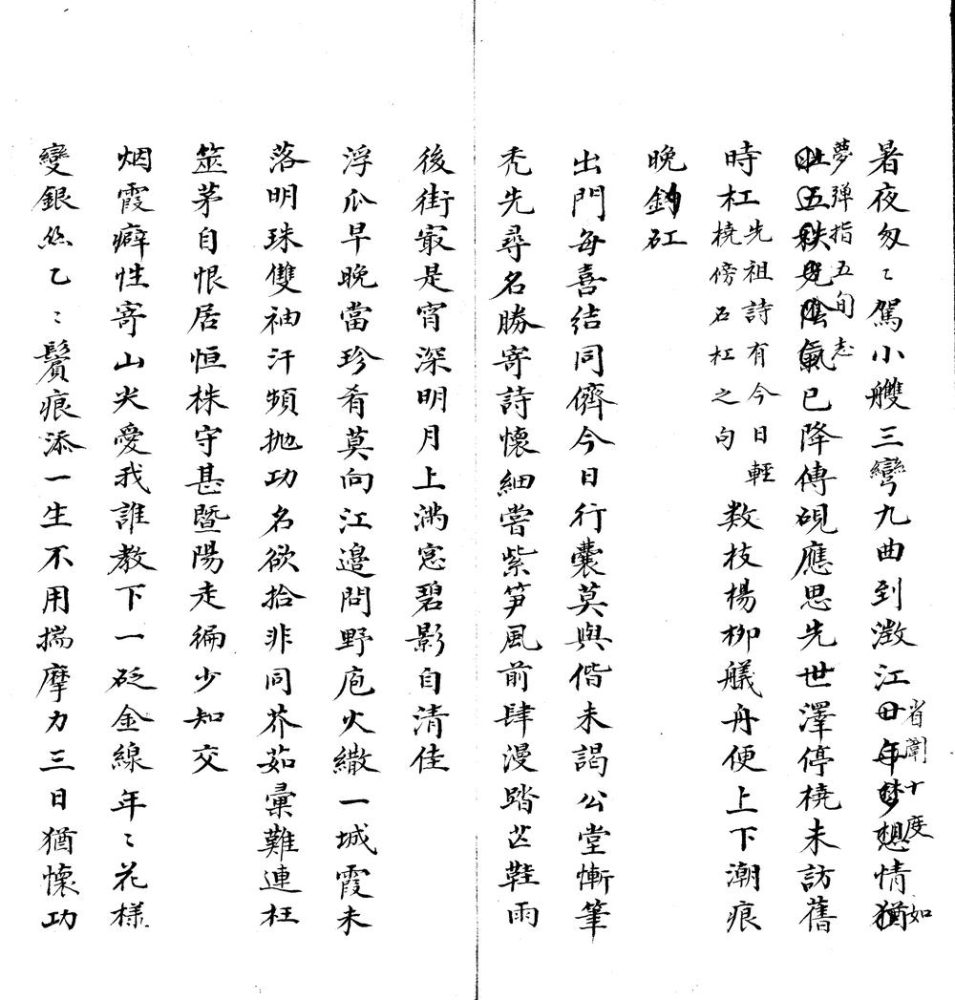 暑夜匆〻駕小艭三彎九曲到澂江廿年夢想情猶
省闈十度 如
夢彈指五旬志
壯五秩光陰氣已降傳硯應思先世澤停橈未訪舊
時杠先祖詩有今日輕橈傍石杠之句數枝楊柳艤舟便上下潮痕
晚釣矼
出門每喜結同儕今日行囊莫與偕未謁公堂慚筆
禿先尋名勝寄詩懷細嘗紫笋風前肆漫踏芒鞋雨
後街寂是宵深明月上滿窓碧影自清佳
浮瓜早晚當珍肴莫向江邊問野庖火繖一城霞未
落明珠雙袖汗頻拋功名欲拾非同芥茹彙難連枉
筮茅自恨居恒株守甚暨陽走徧少知交
烟霞癖性寄山尖愛我誰教下一砭金線年〻花樣
變銀絲乙〻鬢痕添一生不用揣摩力三日猶懷功